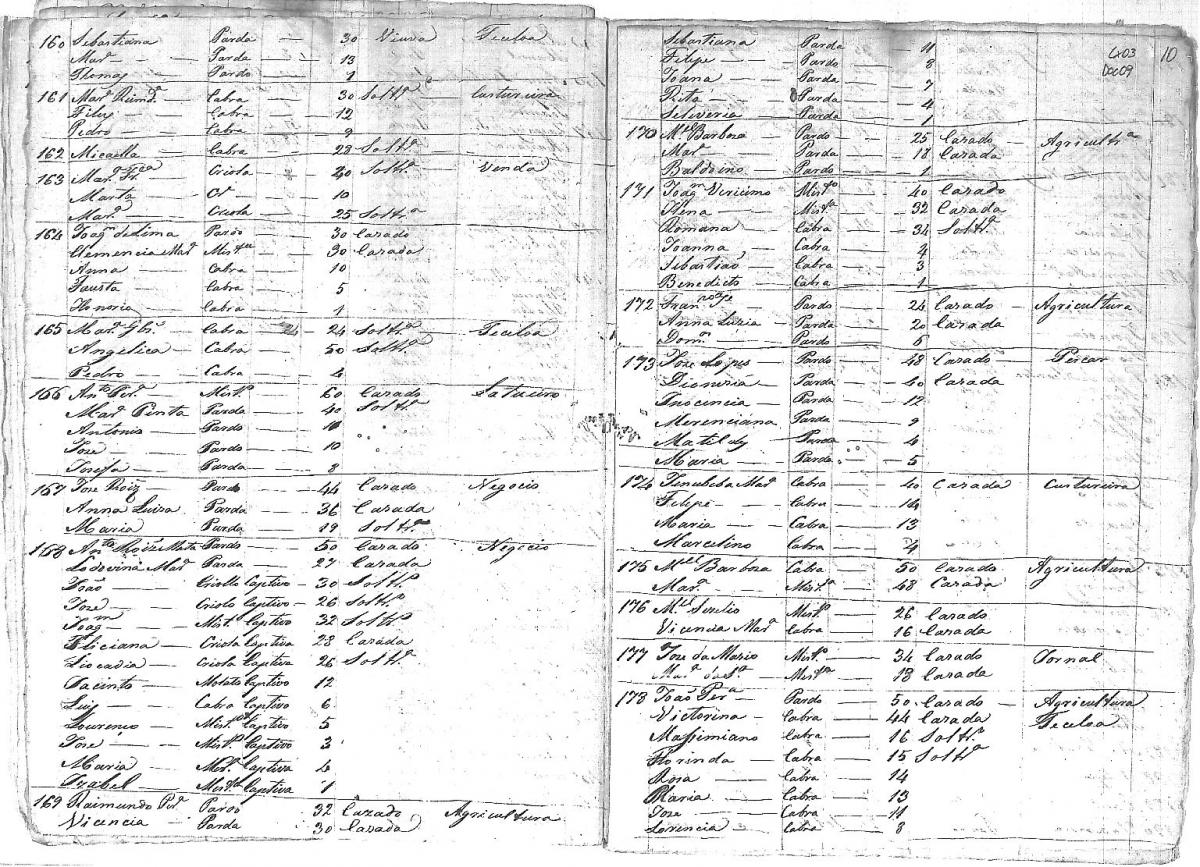 160 Sebastiana Parda 30 Viuva Teceloa
Mar.ª Parda 13
Thomaz Pardo 1
161 Mar.ª Rdimd.ª Cabra 30 Soltr.ª Custureira
Filip Cabra 12
Pedro Cabra 9
162 Micaella Cabra 28 Soltr.ª
163 Mar.ª Fr.ca Criola 40 Soltr.ª Venda
Marta Cª 10
Mar.ª Criola 25 Soltr.ª
164 Joaq.m de Lima Pardo 30 Cazado
Clemencia Mar.ª Mist.ª 30 Cazada
Anna Cabra 10
Fausta Cabra 5
Honoria Cabra 1
165 Mar.ª Glr.ª Cabra 24 24 Soltr.ª Teceloa
Angelica Cabra 50 Soltr.ª
Pedro Cabra 4
166 An.to Per.ª Mist.º 60 Cazado
Mar.ª Penta Parda 40 Soltr.ª
Antonio Pardo 11
Joze Pardo 10
Josefa Parda 8
167 Joze Roiz Pardo 44 Cazado Negocio
Anna Luiza Parda 36 Cazada
Maria Parda 19 Soltr.ª
168 An.to Roiz Mata Pardo 50 Cazado Negocio
Lodovina Mar.ª Parda 27 Cazada
João Criolo Captivo 30 Soltr.º
Joze Criolo Captivo 26 Soltr.º
Joaq.m Mist.º Captivo 32 Soltr.º
Feliciana Criola Captiva 28 Cazada
Liocadia Criola Captiva 26 Soltr.ª
Jacinto Molato Captivo 12
Luiz Cabra Captivo 6
Lourenço Mist.º Captivo 5
Joze Mist.º Captivo 3
Maria Mist.ª Captiva 4
Izabel Mist.ª Captiva 1
169 Raimundo Per.ª Pardo 32 Cazado Agricultura
Vicencia Parda 30 Cazada
Cx03 10
Doc09
Sebastiana Parda 11
Filipe Pardo 8
Joana Parda 7
Rita Parda 4
Silveria Parda 1
170 M.el Barboza Pardo 25 Cazado Agricultr.ª
Mar.ª Parda 18 Cazada
Baldoino Pardo 1
171 Joaq.m Vericimo Mist.º 40 Cazado
Elena Mist.ª 32 Cazada
Romana Cabra 34 Soltr.ª
Joanna Cabra 4
Sebastiaõ Cabra 3
Benedicto Cabra 1
172 Fran.co Pardo 24 Cazado Agricultura
Anna Luzia Parda 20 Cazada
Dom.os Pardo 5
173 Joze Lopes Pardo 48 Cazado Pescar
Dionizia Parda 40 Cazada
Inocencia Parda 12
Merenciana Parda 9
Matildes Parda 4
Maria Parda 5
174 Mar.ª Cabra 40 Cazada Custureira
Filipe Cabra 14
Maria Cabra 13
Marcelino Cabra 4
175 M.el Barboza Cabra 50 Cazado Agricultura
Mar.ª Mist.ª 48 Cazada
176 M.el Mist.º 26 Cazado
Vicencia Mar.ª Cabra 16 Cazada
177 Joze da Mario Mist.º 34 Cazado Jornal
Mar.ª Mist.ª 18 Cazada
178 João Per.ª Pardo 50 Cazado Agricultura
Victorina Cabra 44 Cazada Teceloa
Massimiano Cabra 16 Soltr.º
Florinda Cabra 15 Soltr.ª
Roza Cabra 14
Maria Cabra 13
Joze Cabra 11
Lorencia Cabra 8